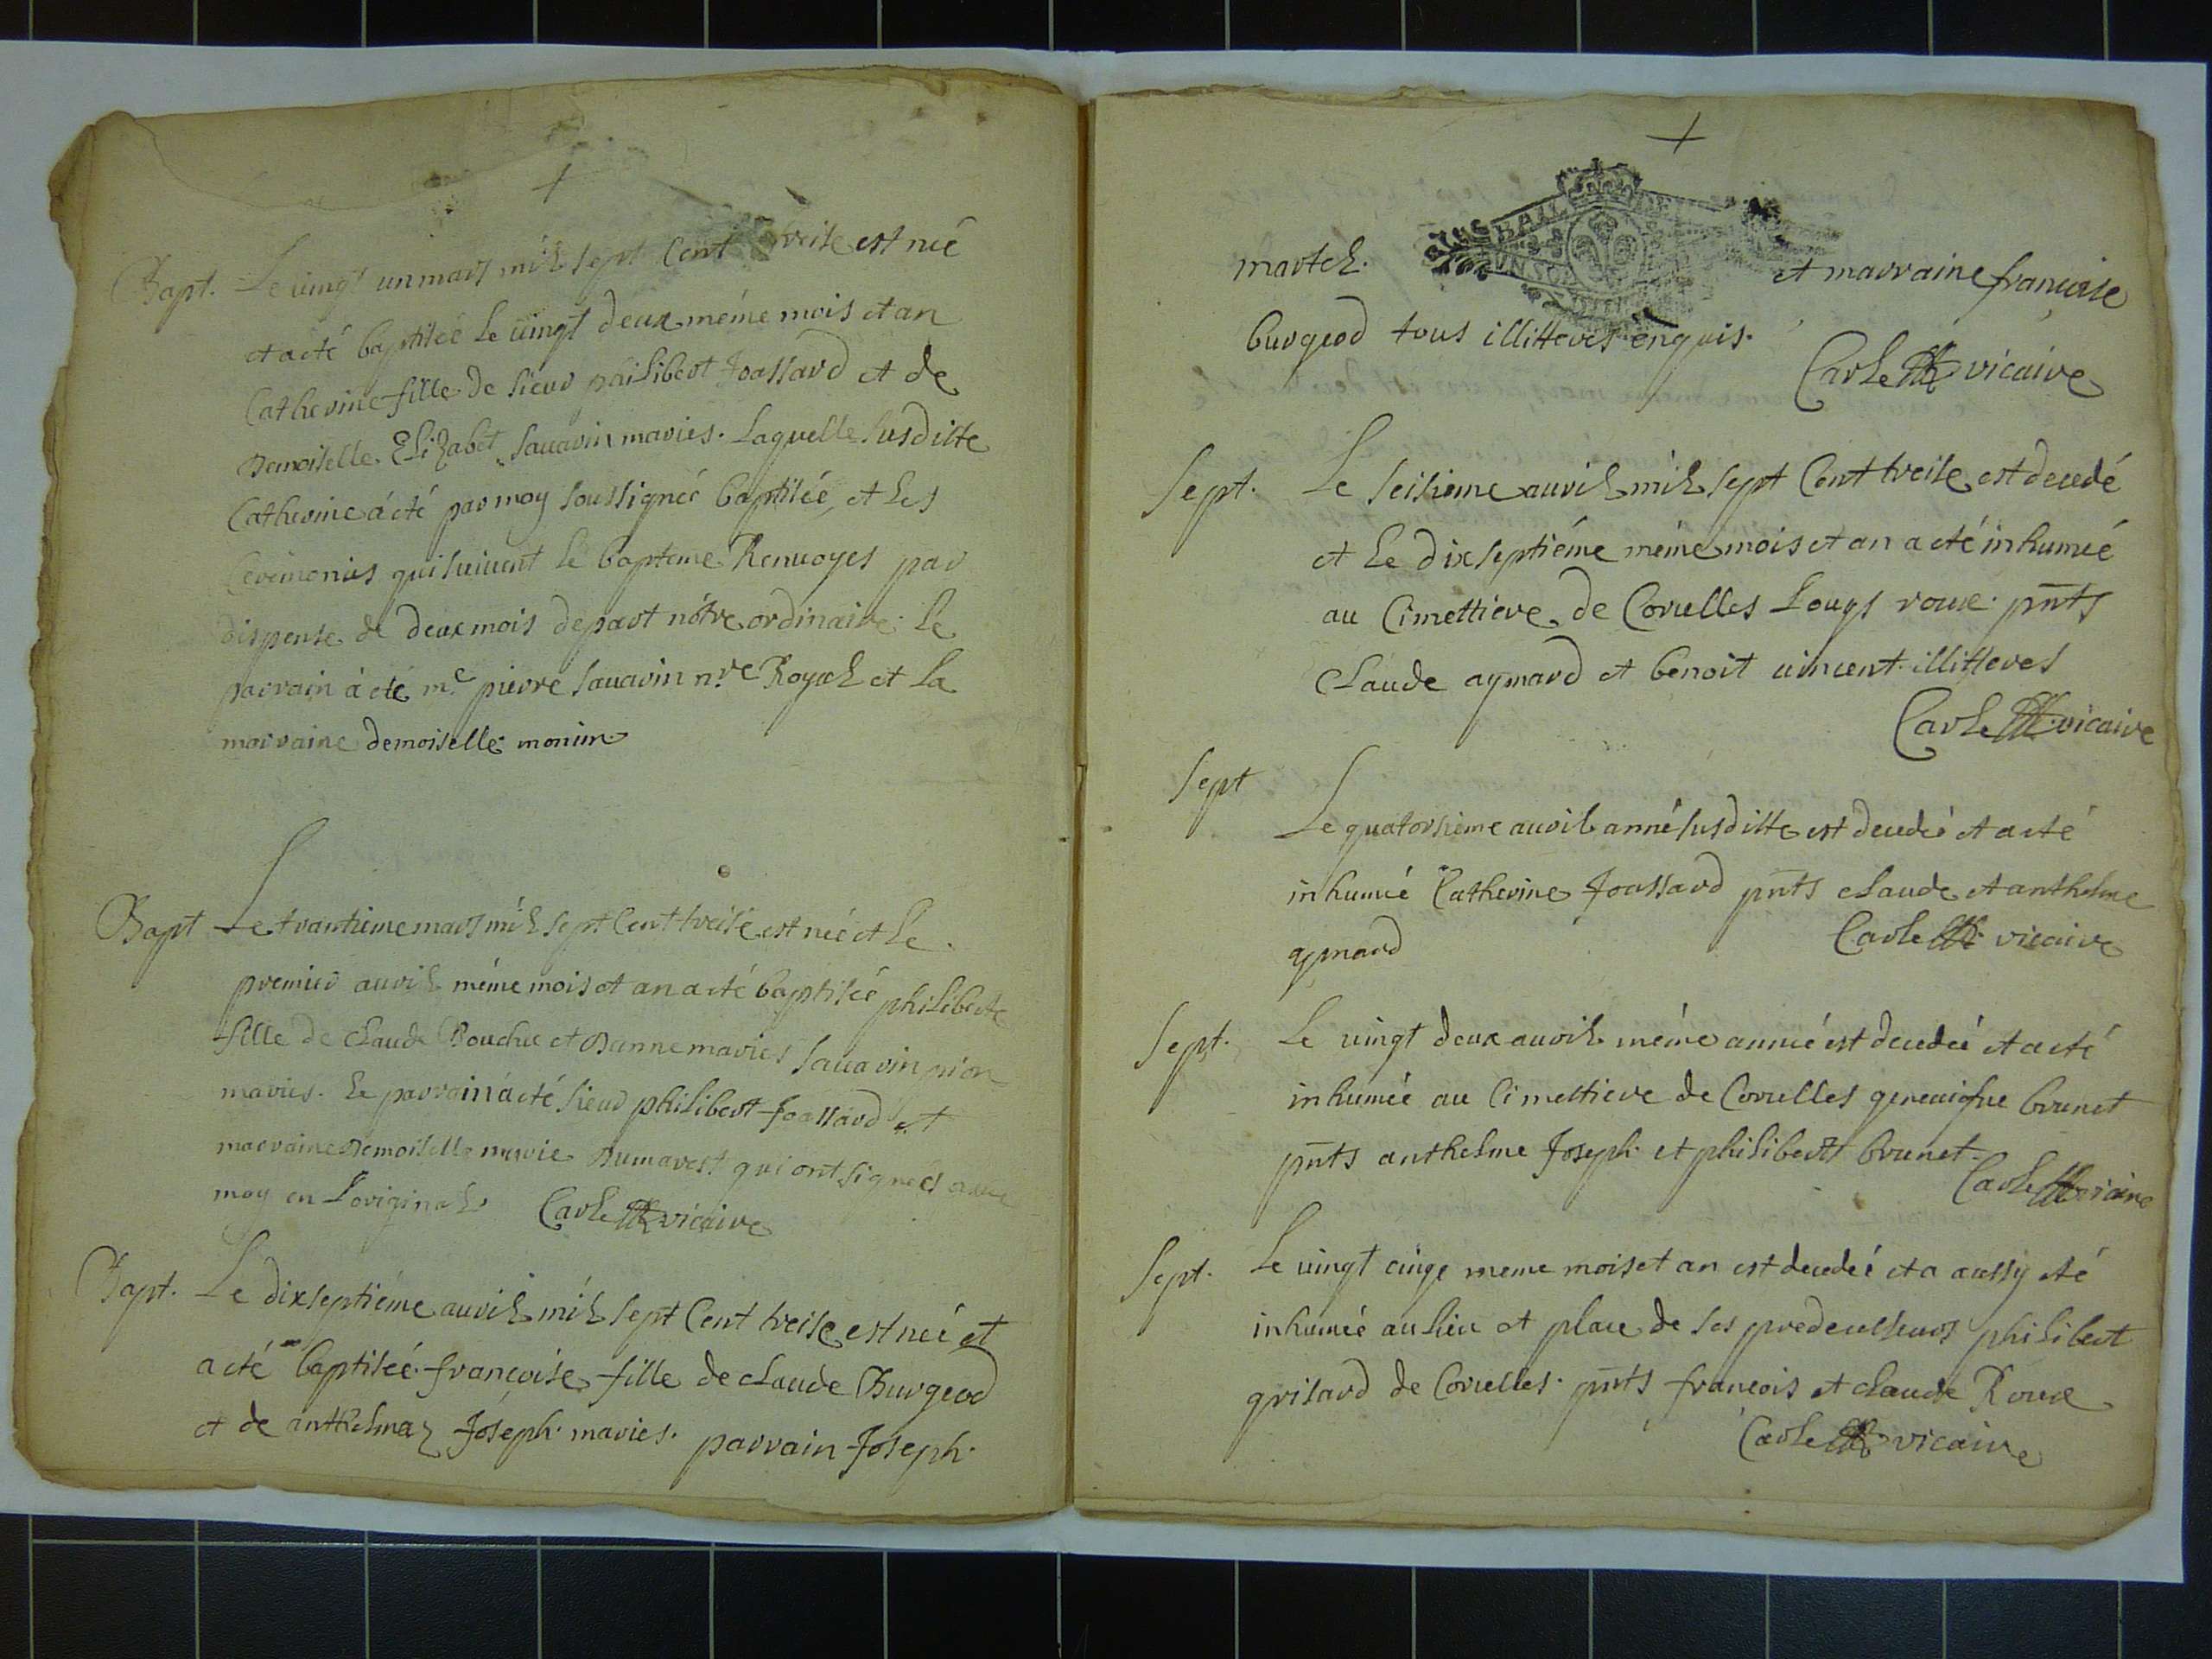 Bapt. Le vingt un mars mil sept cent treise est née
et a eté baptisée le vingt deux méme mois et an
Catherine fille de sieur philibert Joassard et de
Demoiselle Elizabet Savarin mariés. Laquelle susditte
Catherine á eté par moy soussigneé baptisée, et les
ceremonies qui suivent le bapteme Renvoyes par
dispense de deux mois depart nótre ordinaire. le
parrain à eté m.e pierre Savarin n.re Royal et la
marraine demoiselle monin
Bapt Le trantieme mars mil sept cent treise est née et le
premier avril méme mois et an a eté baptisée philiberte
fille de claude Bouchu et D'annemaries Savarin
mariés. le parrain á eté sieur philibert Joassard et
marraine Demoiselle marie Dumarest qui ont signeés avec
moy en L'original Carle vicaire
Bapt. Le dixseptiéme avril mil sept cent treise est neé et
a eté baptiseé françoise fille de claude Burgeod
et de anthelmaz Joseph mariés. parrain Joseph
martel. et marraine françoise
burgeod tous illitteres enquis.
Carle vicaire
Sept. Le seisieme avril mil sept cent treise est decedé
et le dix septiéme méme mois et an a eté inhumeé
au cimettiere de Corcelles Louys roux. pnts
claude aymard et benoit vincent illitteres
Carle vicaire
Sept
Le quatorsieme avril anné susditte est decedeé et a eté
inhumeé Catherine Joassard pnts claude et anthelme
aymard Carle vicaire
Sept. Le vingt deux avril méme anneé est decedeé et a eté
inhumeé au cimettiere de Corcelles geneviefue brunet
pnts anthelme Joseph et philibert brunet.
Carle vicaire
Sept. Le vingt cinqe meme mois et an est decedeé et a aussy eté
inhumeé au lieu et place de ses predecesseurs philibert
grisard de Corcelles. pnts françois et claude Roux
Carle vicaire